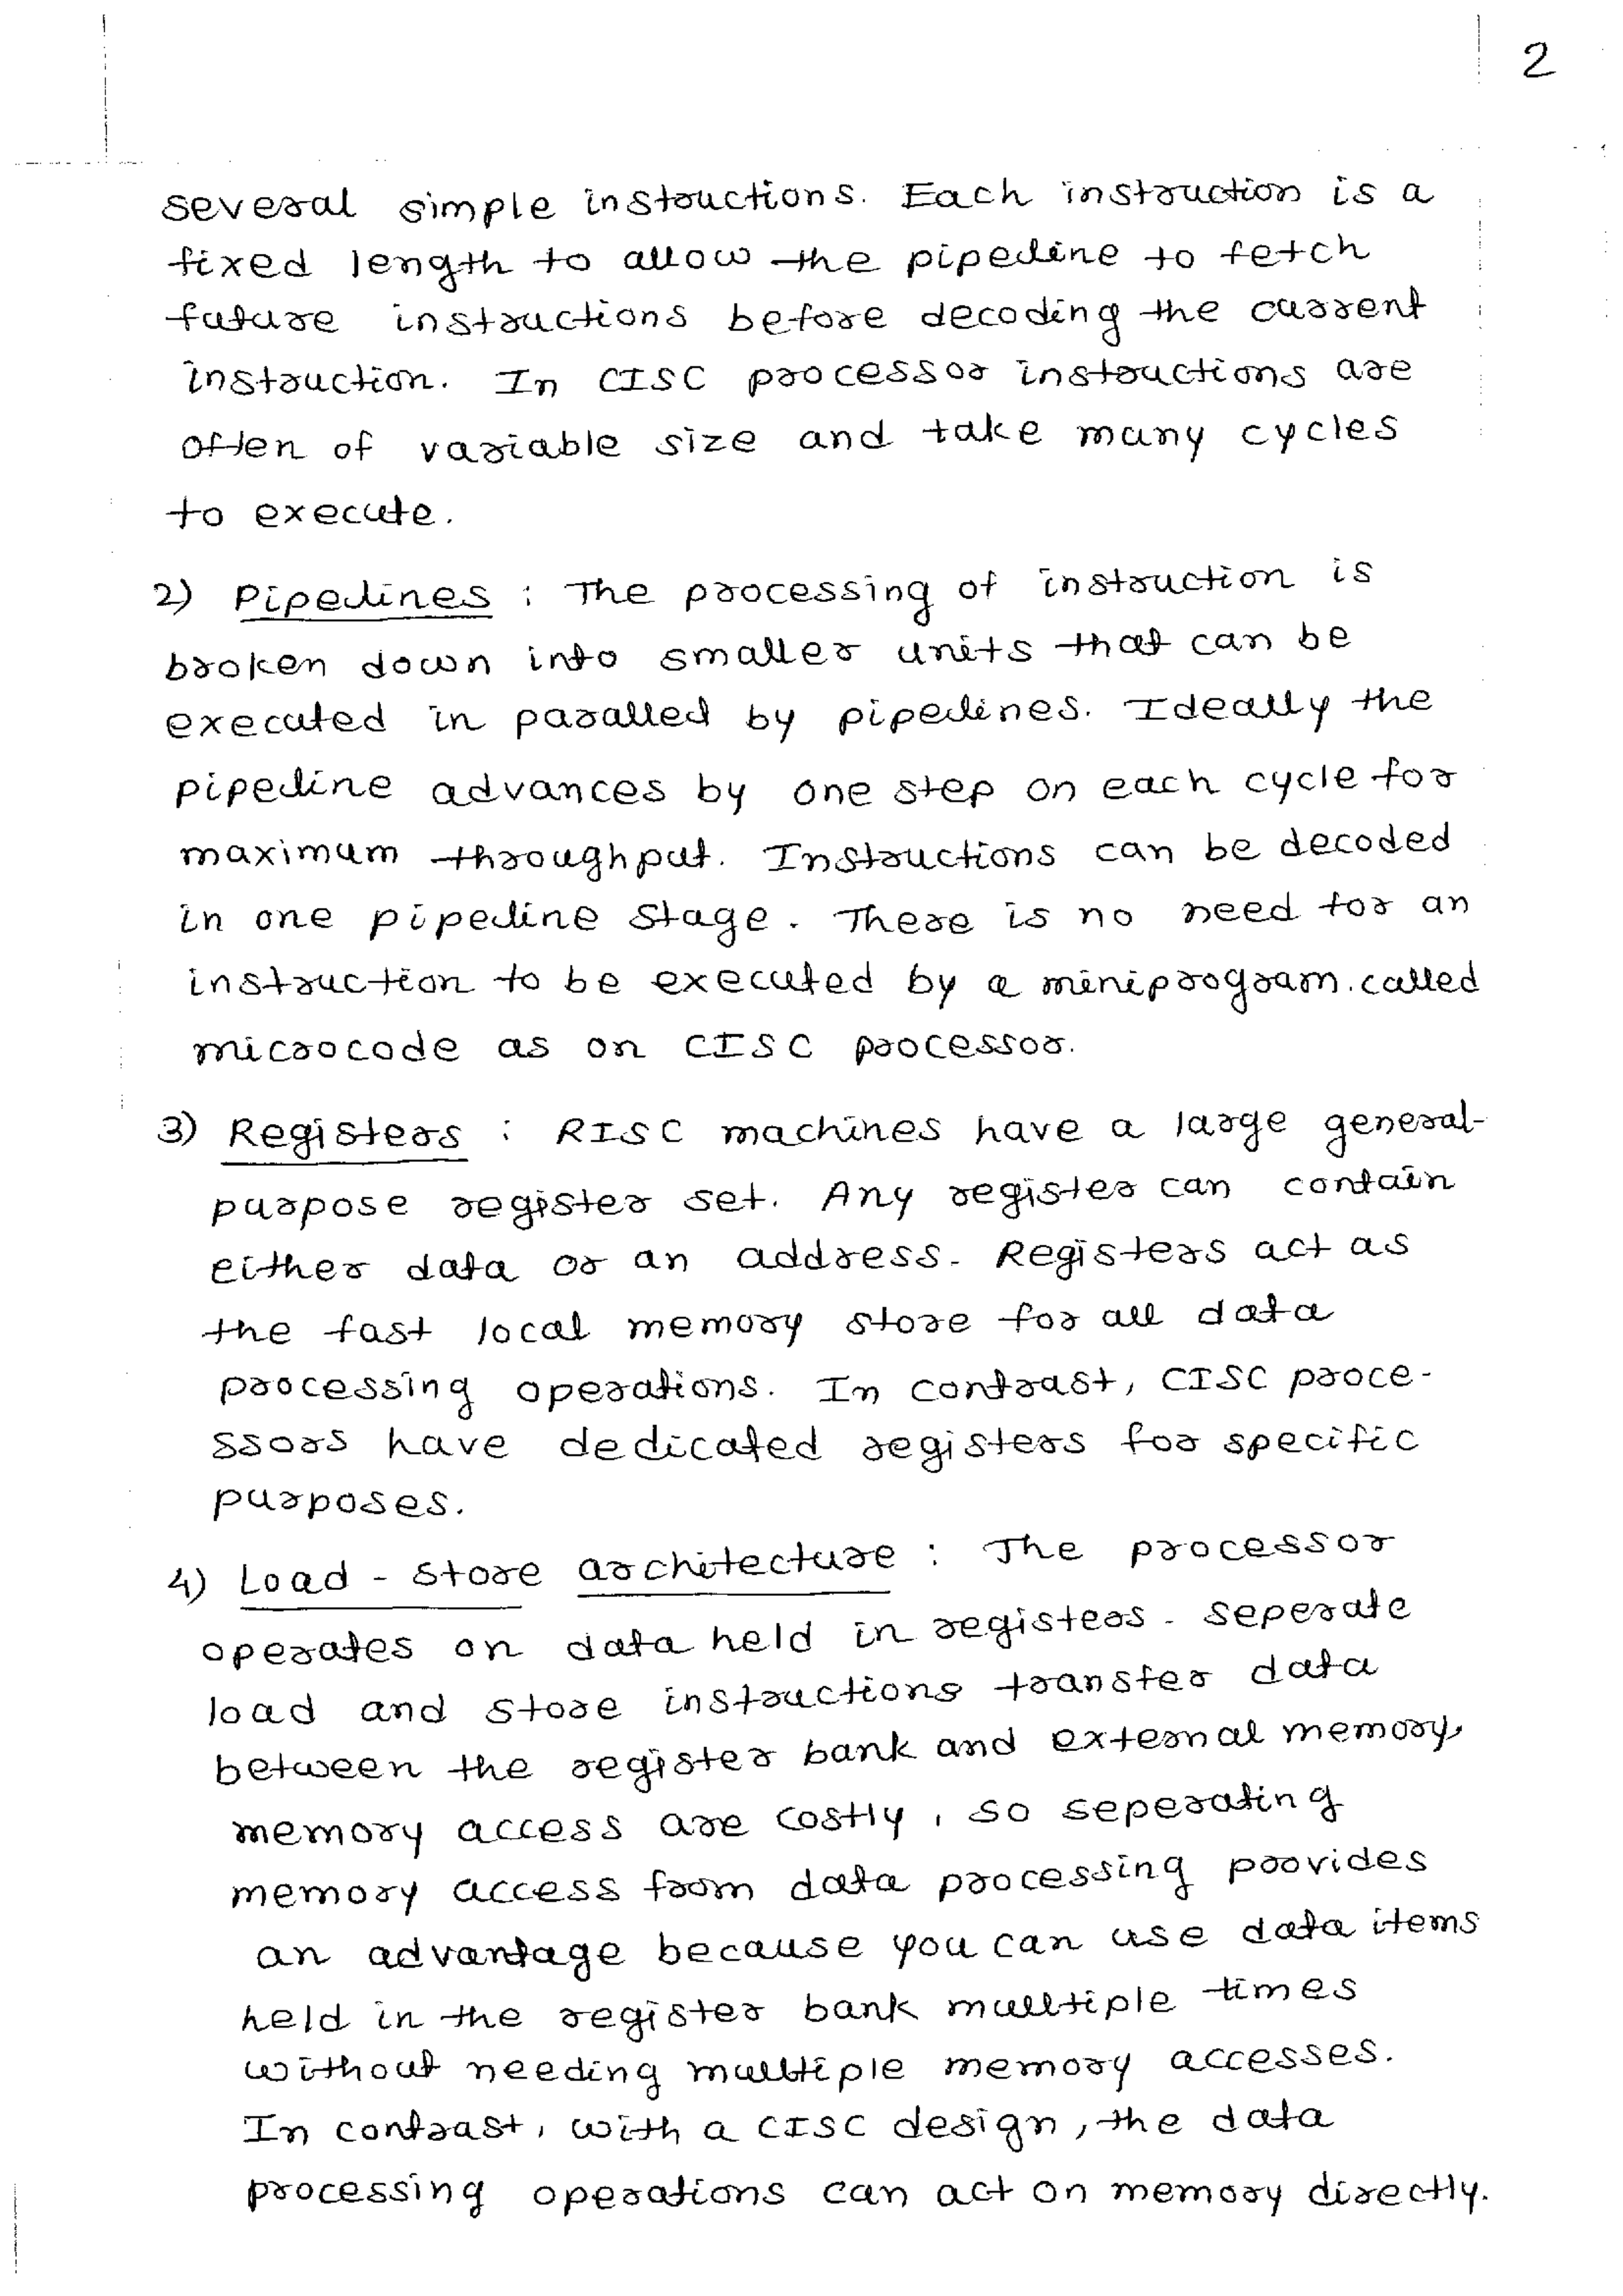 2
several simple instructions. Each instruction is a
fixed length to allow the pipeline to fetch
future instructions before decoding the current
instruction. In CISC processor instructions are
often of variable size and take many cycles
to execute.
2) Pipelines : The processing of instruction is
broken down into smaller units that can be
executed in paralled by pipelines. Ideally the
pipeline advances by one step on each cycle for
maximum throughput. Instructions can be decoded
in one pipeline stage. There is no need for an
instruction to be executed by a miniprogram. called
microcode as on CISC processor.
3) Registers : RISC machines have a large general-
purpose register set. Any register can contain
either data or an address. Registers act as
the fast local memory store for all data
processing operations. In contrast, CISC proce-
ssors have dedicated registers for specific
purposes.
4) Load - store architecture : The processor
operates on data held in registers. seperate
load and store instructions transfer data
between the register bank and external memory,
memory access are costly, so seperating
memory access from data processing provides
an advantage because you can use data items
held in the register bank multiple times
without needing multiple memory accesses.
In contrast, with a CISC design, the data
processing operations can act on memory directly.